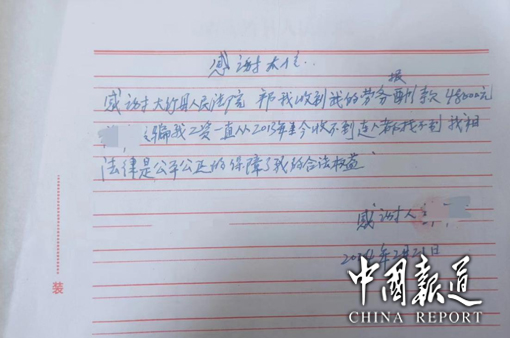 感谢大信
报
感谢大竹县人民法院 帮我收到我的劳务酬款48000元
骗我工资一直从2013年至今收不到连人都找不到 我相
法律是公平公正的保障了我的合法权益
感谢人:
年2月21日
装
中国报道
CHINA REPORT